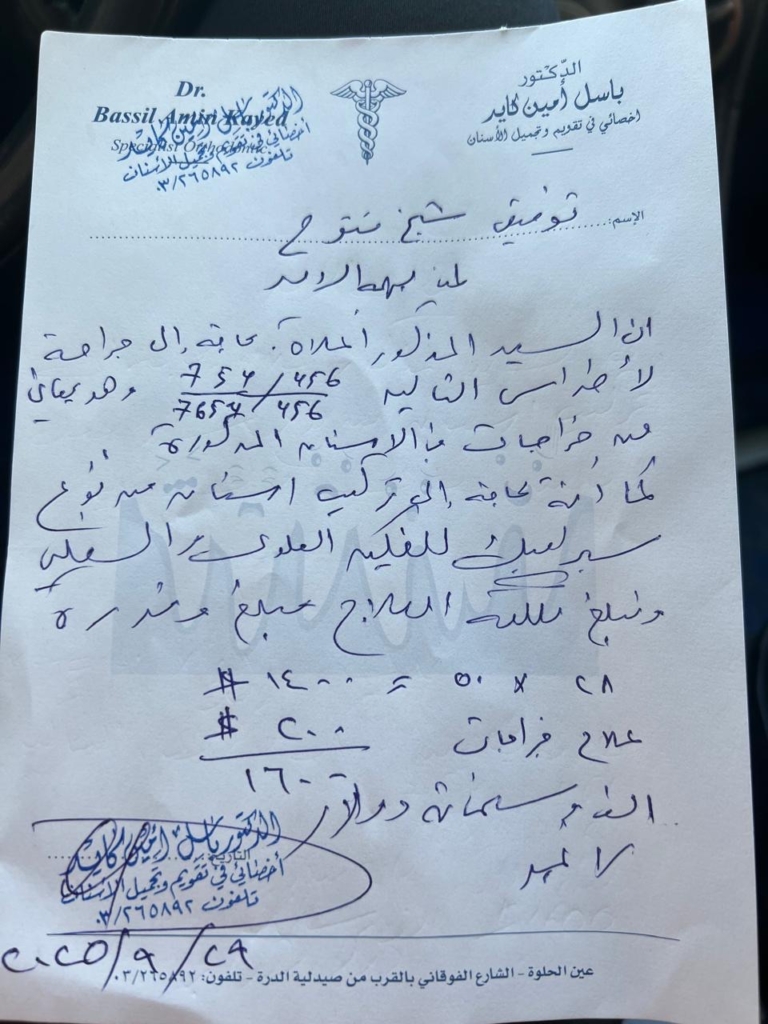 Dr.
Bassil Amin Kayed
Specialist Orthodontic
الدكتور باسل أمين كايد
أخصائي في تقويم وتجميل الأسنان
تلفون ٠٣/٢٦٥٨٩٢
الدّكتور
باسل أمين كايد
اخصائي في تقويم وتجميل الأسنان
الإسم: توفيق شيخ
لمن يهمه الامر
ان السيد المذكور أعلاه بحاجة إلى جراحة
لأضراس التالية 754/456 وهو يعاني
7654/456
من خراجات في الاسنان المذكورة
كما أنه بحاجة إلى تركيب اسنان من نوع
للفكين العلوي والسفلي
وتبلغ تكلفة العلاج مبلغ وقدره
٢٨ x ٥٠ = ١٤٠٠ $
علاج خراجات ٢٠٠ $
١٦٠٠
الف و ستمائة دولار
لا غير
التاريخ:
الدكتور باسل أمين كايد
أخصائي في تقويم وتجميل الأسنان
تلفون ٠٣/٢٦٥٨٩٢
٢٠٢٥/٩/٢٩
عين الحلوة - الشارع الفوقاني بالقرب من صيدلية الدرة - تلفون: ٠٣/٢٦٥٨٩٢